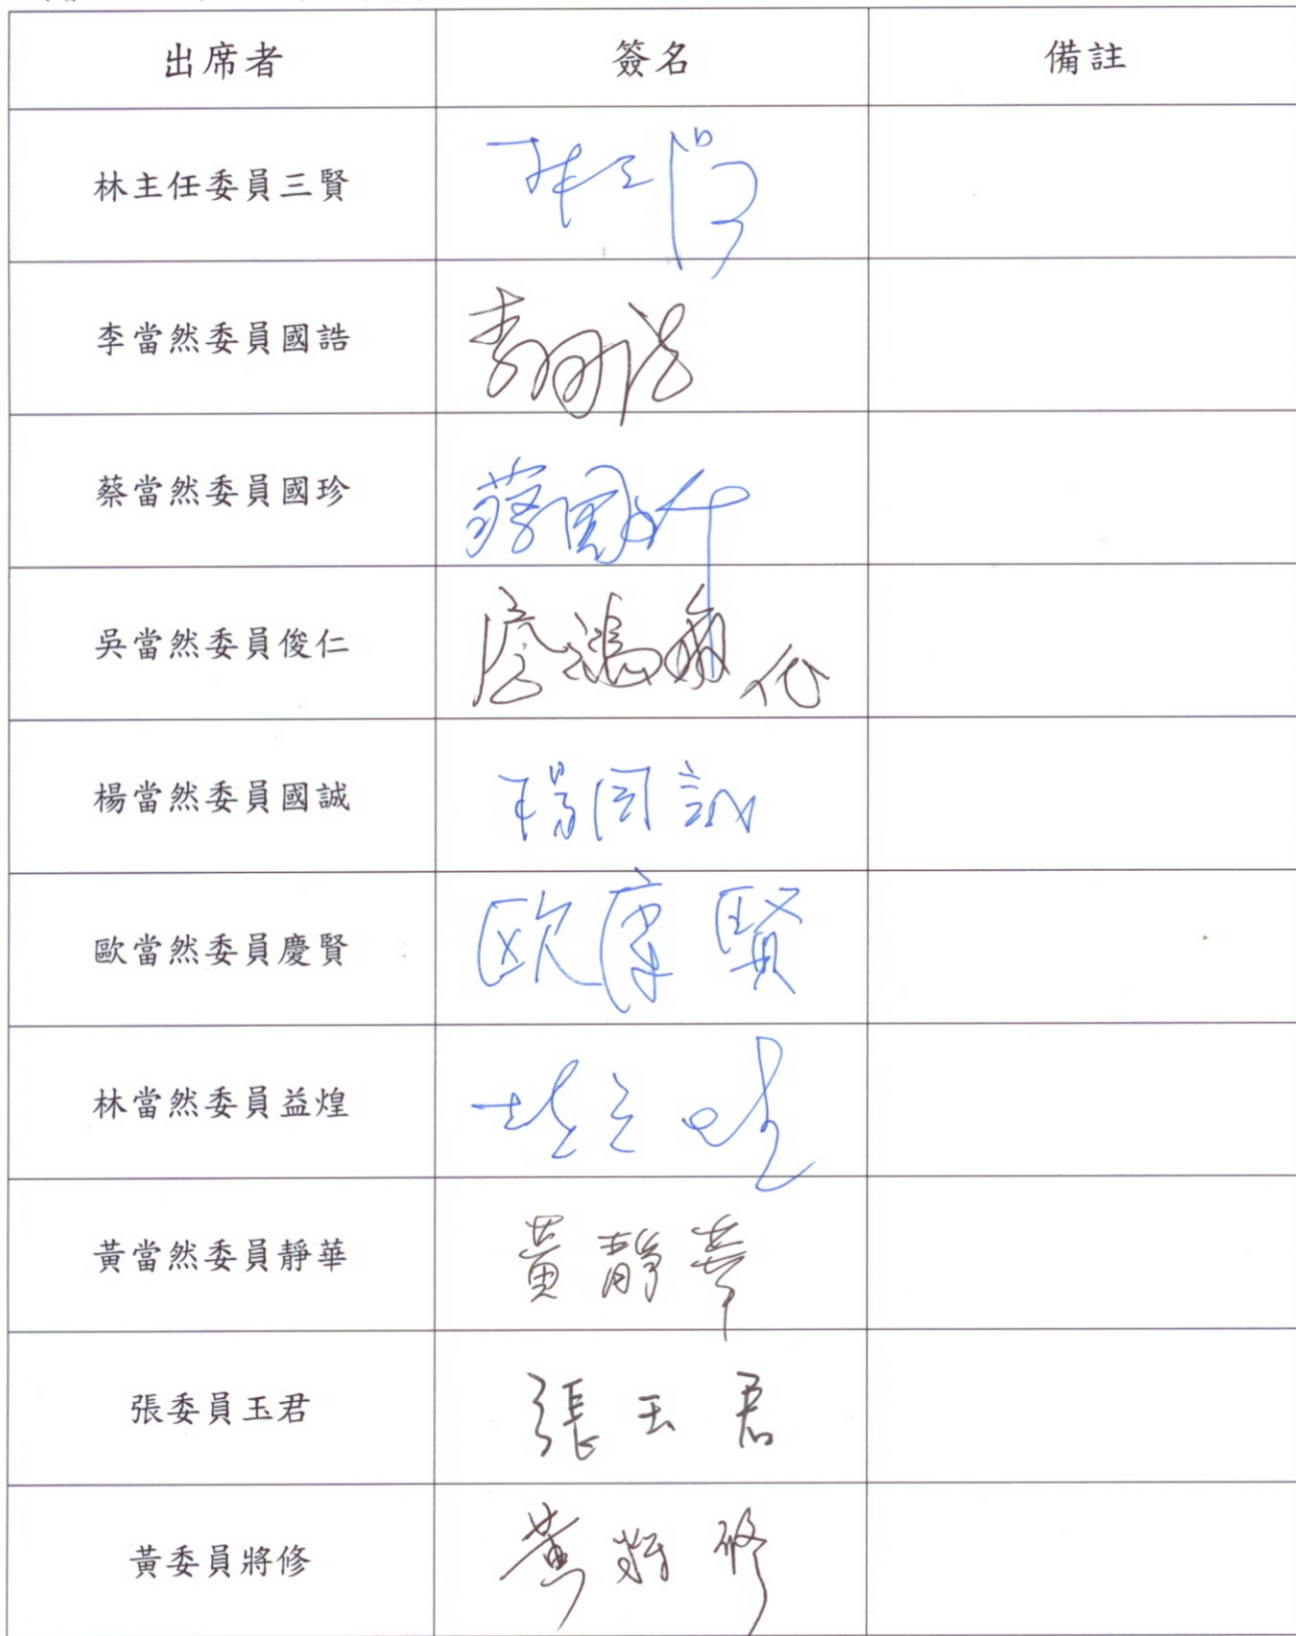 出席者 簽名 備註
林主任委員三賢 林三賢
李當然委員國誥 李國誥
蔡當然委員國珍 蔡國珍
吳當然委員俊仁 代
楊當然委員國誠 楊国誠
歐當然委員慶賢 歐慶賢
林當然委員益煌 林益煌
黃當然委員靜華 黃靜華
張委員玉君 張玉君
黃委員將修 黃將修